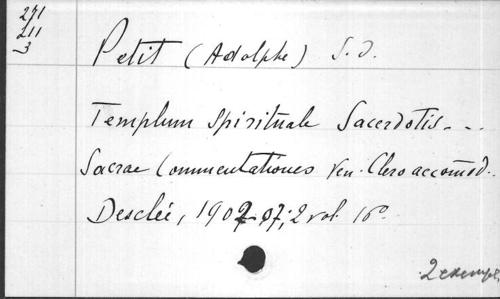 271
211
3
Petit (Adolphe) S.J.
Templum spirituale Sacerdotis...
Sacrae Commentationes Ven. Clero accomod..
Desclée, 1902-07; 2 vol. 16°
2 exempl.